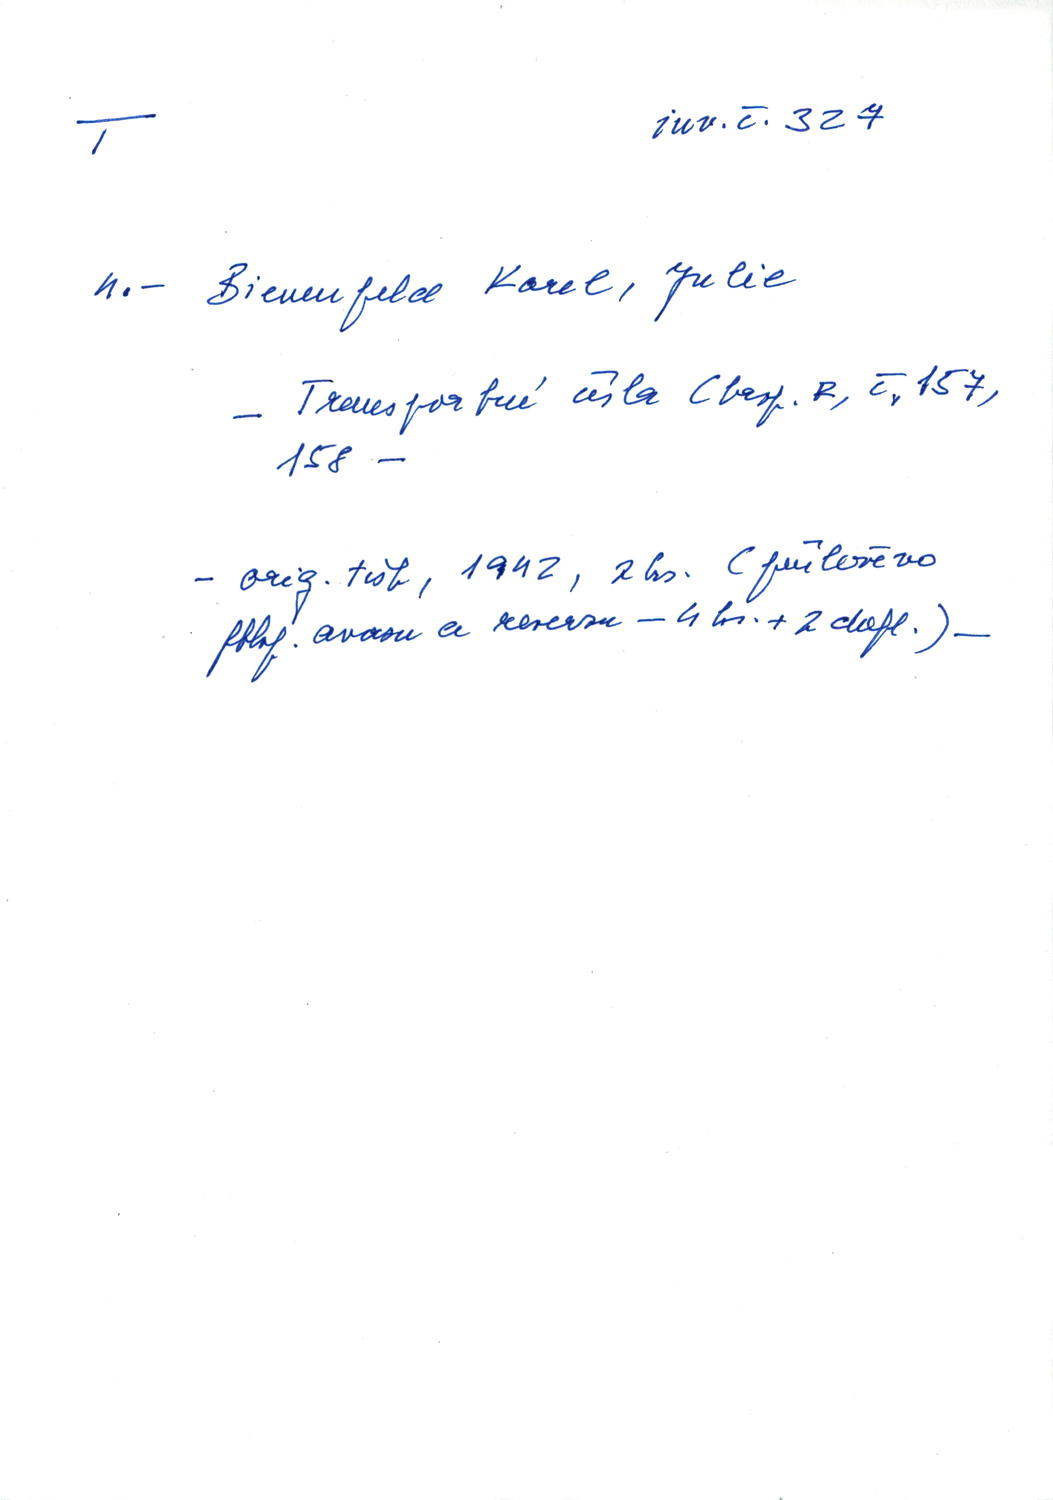 T inv. č. 327
4. – Bienenfeld Karel, Julie
– Transportní čísla (transp. R, č. 157,
158 –
– orig. tisk, 1942, 2 ks. (přiloženo
fotok. aversu a reversu – 4 ks. + 2 dupl.) –